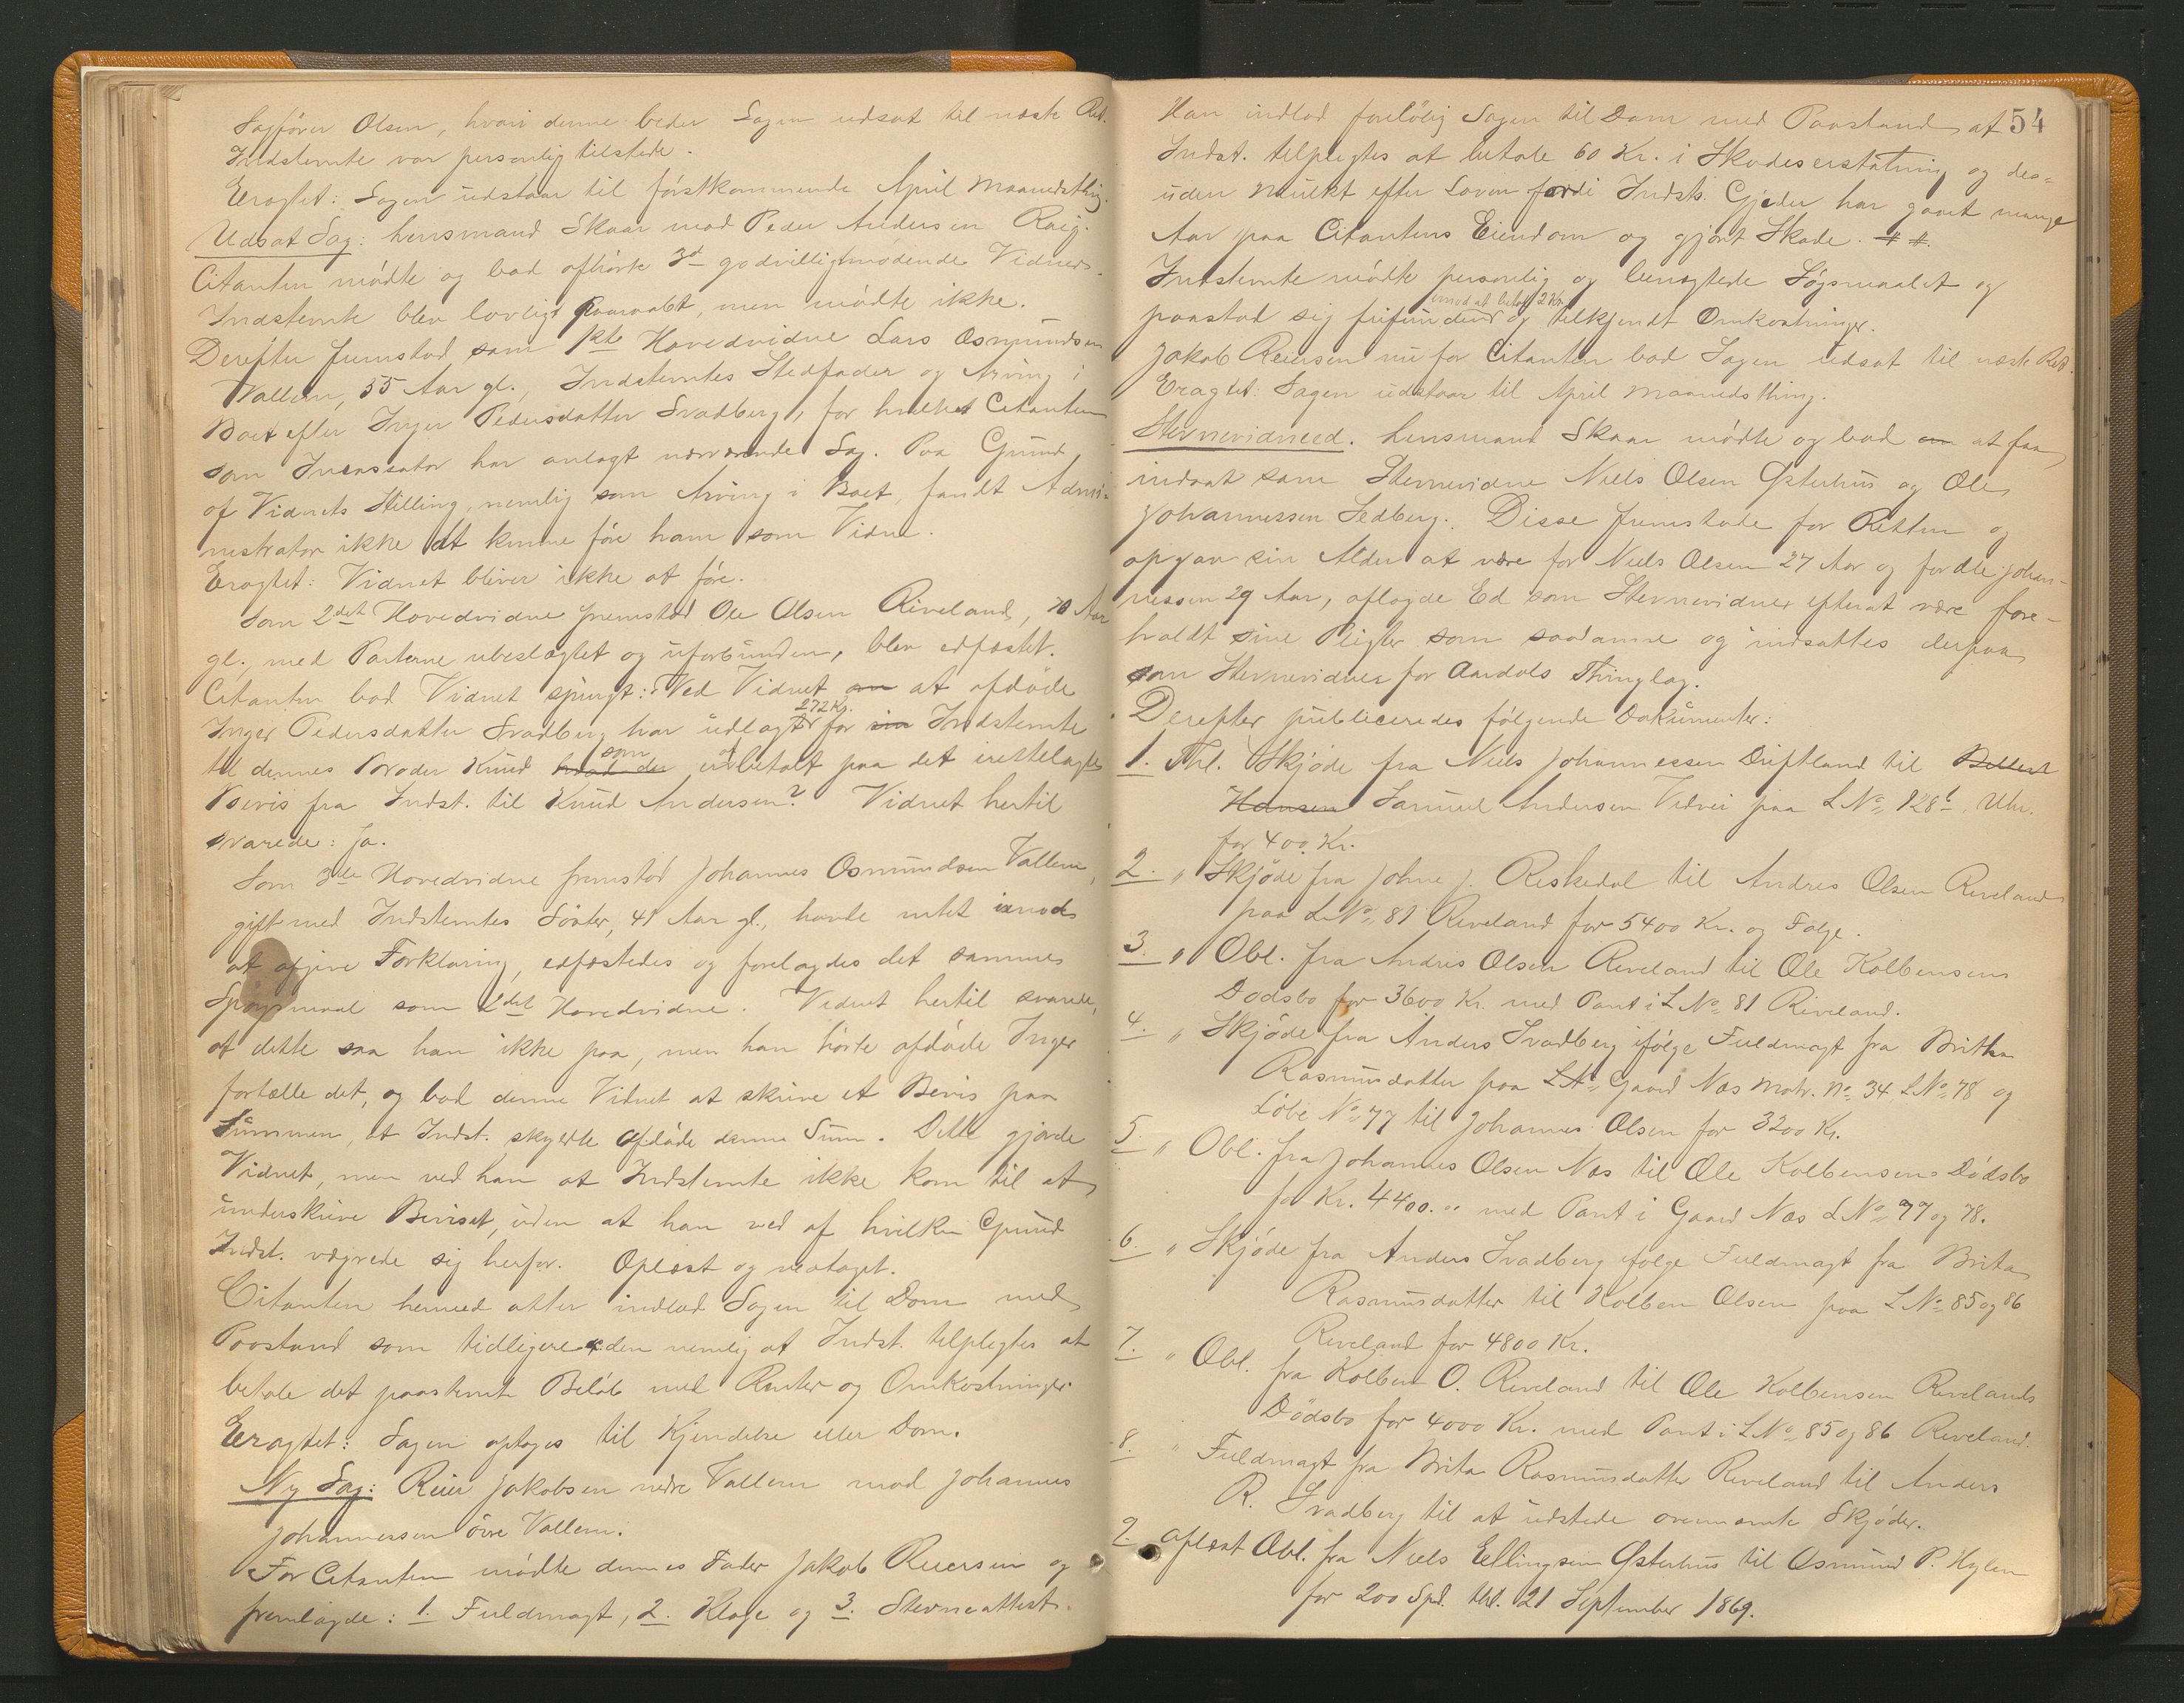 Sagfører Olsen, hvori denne beder Sagen udsat til næste Ret.
Indstemte var personlig tilstede.
Eragtet: Sagen udstaar til førstkommende April Maanedsthing.
Udsat Sag: Lensmand Skaar mod Peder Andersen Røig.
Citanten mødte og bad afhørte 3d godvilligmødende Vidner.
Indstemte blev lovligt paaraabt, men mødte ikke.
Derefter fremstod som 1ste Hovedvidne Lars Osmundsen
Vallem, 55 Aar gl., Indstemtes Stedfader og Arving i
Boet efter Inger Pedersdatter Svadberg, for hvilket Citanten
som Incassator har anlagt nærværende Sag. Paa Grund
af Vidnets Stilling, nemlig som Arving i Boet, fandt Admi-
nistrator ikke at kunne føre ham som Vidne.
Eragtet: Vidnet bliver ikke at føre.
Som 2det Hovedvidne fremstod Ole Olsen Riveland, 70 Aar
gl., med Parterne ubeslægtet og uforbunden, blev edfæstet.
Citanten bad Vidnet spurgt: Ved Vidnet om at afdøde
272 Kr.
Inger Pedersdatter Svadberg har udlagt for Indstemte
til dennes Broder Knud som er ubetalt paa det irettelagte
Bevis fra Indst. til Knud Andersen? Vidnet hertil
svarede: Ja.
Som 3die Hovedvidne fremstod Johannes Osmundsen Vallem,
gift med Indstemtes Søster, 41 Aar gl., havde intet imod
at afgive Forklaring, edfæstedes og forelagdes det samme
Spørgsmaal som 2det Hovedvidne. Vidnet hertil svarede,
at dette saa han ikke paa, men han hørte afdøde Inger
fortælle det, og bad denne Vidnet at skrive et Bevis paa
Summen, at Indst. skyldte afdøde denne Sum. Dette gjorde
Vidnet, men ved han at Indstemte ikke kom til at
underskrive Beviset, uden at han ved af hvilken Grund
Indst. vægrede sig herfor. Oplæst og vedtaget.
Citanten hermed atter indlod Sagen til Dom med
Paastand som tidligere nemlig at Indst. tilpligtes at
betale det paastemte Beløb med Renter og Omkostninger.
Eragtet: Sagen optages til Kjendelse eller Dom.
Ny Sag: Reier Jakobsen nedre Vallem mod Johannes
Johannessen øvre Vallem.
For Citanten mødte dennes Fader Jakob Reiersen og
fremlagde: 1. Fuldmagt, 2. Klage og 3. Stevneattest.
54
Han indlod foreløbig Sagen til Dom med Paastand at
Indst. tilpligtes at betale 60 Kr. i Skadeserstatning og des-
uden Mulkt efter Loven fordi Indst. Gjeder har gaaet mange
Aar paa Citantens Eiendom og gjort Skade.
Indstemte mødte personlig og benegtede Søgsmaalet og
imod at betale 2 Kr.
paastod sig frifunden og tilkjendt Omkostninger.
Jakob Reiersen nu for Citanten bad Sagen udsat til næste Ret.
Eragtet: Sagen udstaar til April Maanedsthing.
Stevnevidneed. Lensmand Skaar mødte og bad om at faa
indsat som Stevnevidne Niels Olsen Østerhus og Ole
Johannessen Sedberg. Disse fremstode for Retten og
opgav sin Alder at være for Niels Olsen 27 Aar og for Ole Johan-
nessen 29 Aar, aflagde Ed som Stevnevidner efterat være fore-
holdt sine Pligter som saadanne og indsattes derpaa
som Stevnevidner for Aardals Thinglag.
Derefter publiceredes følgende Dokumenter:
1. Thl. Skjøde fra Niels Johannessen Diftland til Bellest
Hansen Samuel Andersen Vidvei paa L No 128b Uhr.
for 400 Kr.
2. " Skjøde fra Johne J. Reskedal til Andres Olsen Riveland
paa L No 81 Riveland for 5400 Kr. og Følge.
3. " Obl. fra Andres Olsen Riveland til Ole Kolbensens
Dødsbo for 3600 Kr. med Pant i L No 81 Riveland.
4. " Skjøde fra Anders Svadberg ifølge Fuldmagt fra Britha
Rasmusdatter paa Gaard Næs Matr. No 34, L No 78 og
Løbe No 77 til Johannes Olsen for 3200 Kr.
5. " Obl. fra Johannes Olsen Næs til Ole Kolbensens Dødsbo
for Kr. 4400.00 med Pant i Gaard Næs L No 77 og 78.
6. " Skjøde fra Anders Svadberg ifølge Fuldmagt fra Brita
Rasmusdatter til Kolben Olsen paa L No 85 og 86
Riveland for 4800 Kr.
7. " Obl. fra Kolben O. Riveland til Ole Kolbensen Rivelands
Dødsbo for 4000 Kr. med Pant i L No 85 og 86 Riveland.
8. " Fuldmagt fra Brita Rasmusdatter Riveland til Anders
R. Svadberg til at udstede ovennævnte Skjøder.
9. Aflæst Obl. fra Niels Ellingsen Østerhus til Osmund P. Hylen
for 200 Spd. thl. 21 September 1869.